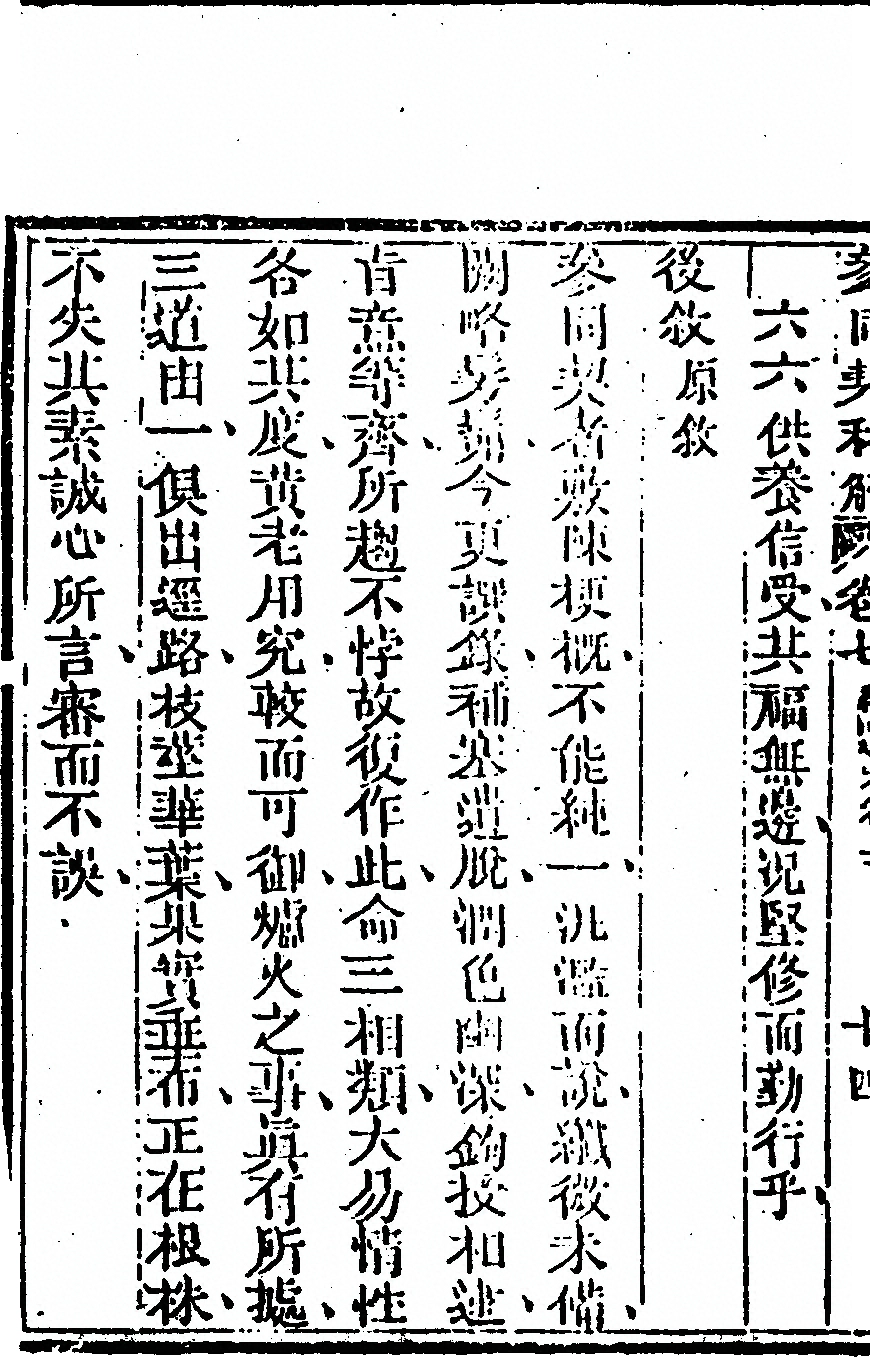 參同契秘解 卷七 十四
六六供養信受其福無邊況堅修而勤行乎
後敘 原敘
參同契者敷陳梗概不能純一汎濫而說纖微未備
闊略髣髴今更譔錄補塞遺脫潤色幽深鉤投相連
旨意等齊所趨不悖故復作此命三相類大易情性
各如其度黃老用究較而可御爐火之事眞有所據
三道由一俱出逕路枝莖華葉果實垂布正在根株
不失其素誠心所言審而不誤